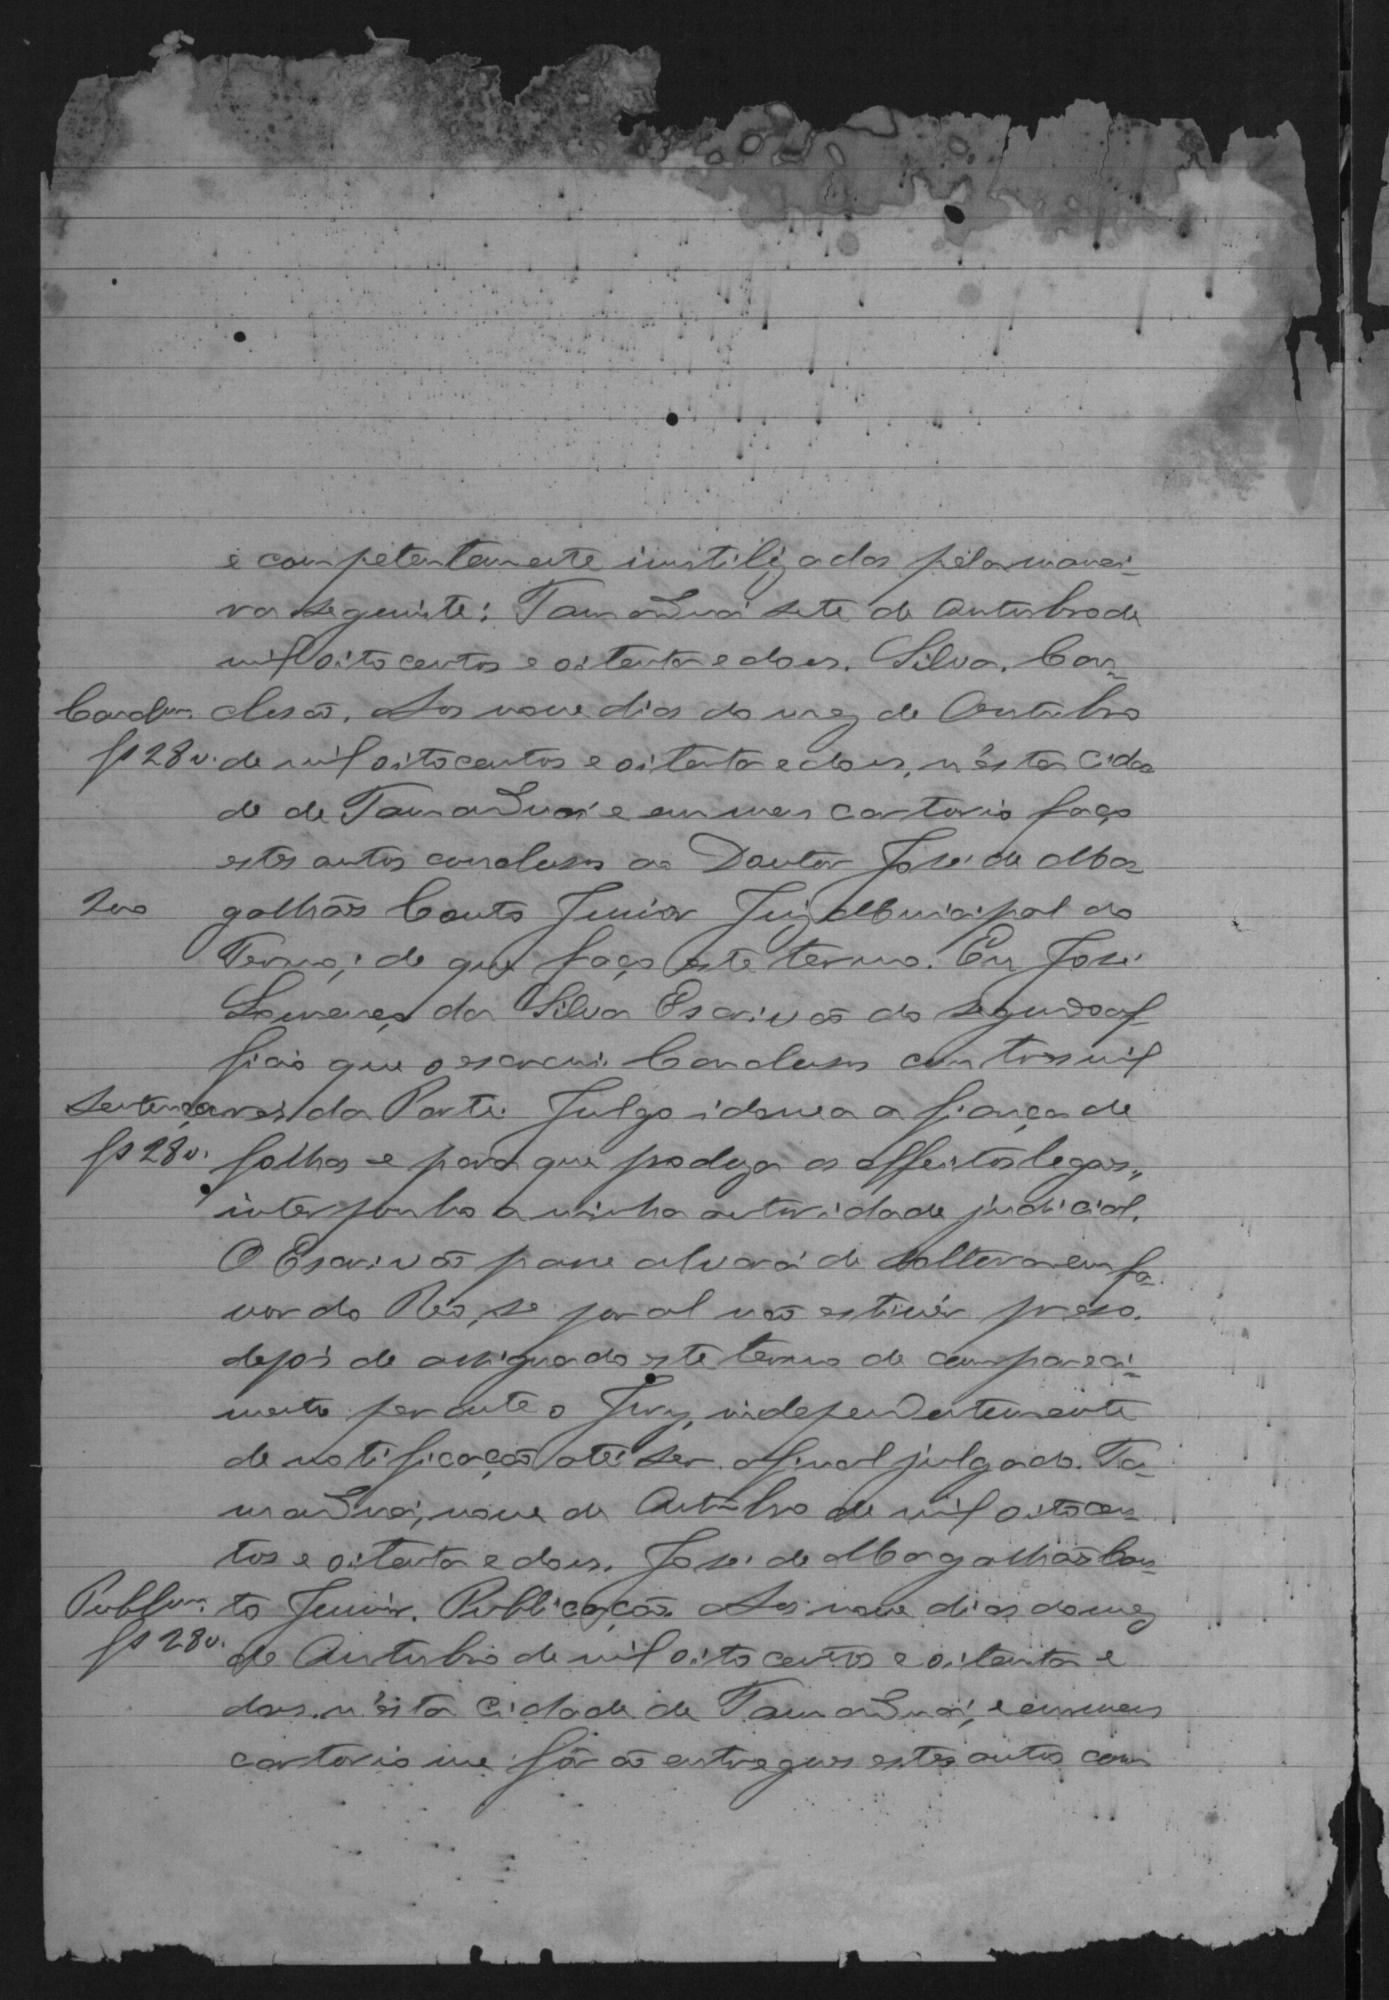 e competentemente inutilizados pela manei-
ra seguinte: Tamanduá sete de Outubro de
mil oitocentos e oitenta e dois. Silva. Con-
clusão. Aos nove dias do mez de Outubro
fs 28 v. de mil oitocentos e oitenta e dois, n'ésta Cida
de de Tamanduá e em meu cartorio faço
estes autos conclusos ao Doutor José de Ma
galhães Couto Junior Juiz Municipal do
Termo; de que faço este termo. Eu José
da Silva Escrivão do segundo of-
ficio que o escrevi Conclusos com tres mil
Sentença reis da Parte. Julgo idonea a fiança de
fs 28 v. folhas e para que produza os effeitos legaes,
interponho a minha autoridade judicial.
O Escrivão passe alvará de solttura em fa-
vor do Réo, se por al não estivér preso.
depois de assignado este termo de compareci-
mento perante o Jury, independentemente
de notificação até ser afinal julgado. Ta-
manduá, nove de Outubro de mil oitocen-
tos e oitenta e dois. José de Magalhães Cou-
to Junior. Publicação. Aos nove dias do mez
fs 28 v. de Outubro de mil oito centos e oitenta e
dois. n'ésta Cidade de Tamanduá, e em meu
cartorio me fôrão entregues estes autos com